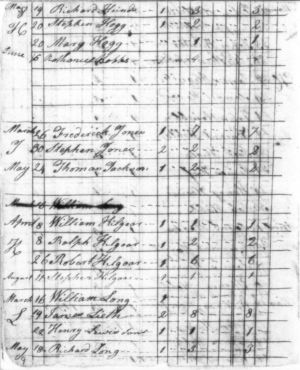 May 19 Richard 1 3 5
H 20 Stephen Hegg 1 2 2
20 Mary Hegg 1 1
June 15 Nathaniel Hobbs
March 26 Frederick Jones 1 7 7
J 30 Stephen Jones 2 2 8
May 24 Thomas Jackson 1 2
William Long
April 8 William Kilgoar 1 1 1
K 8 Ralph Kilgoar 1 2 2
26 Robert Kilgoar 1 6 6
August 11 Stephen Kilgoar 1 1
March 16 William Long 1
L 19 James 2 8 8
22 Henry Lewis 1 1 1
May 18 Richard Long 1 5 5